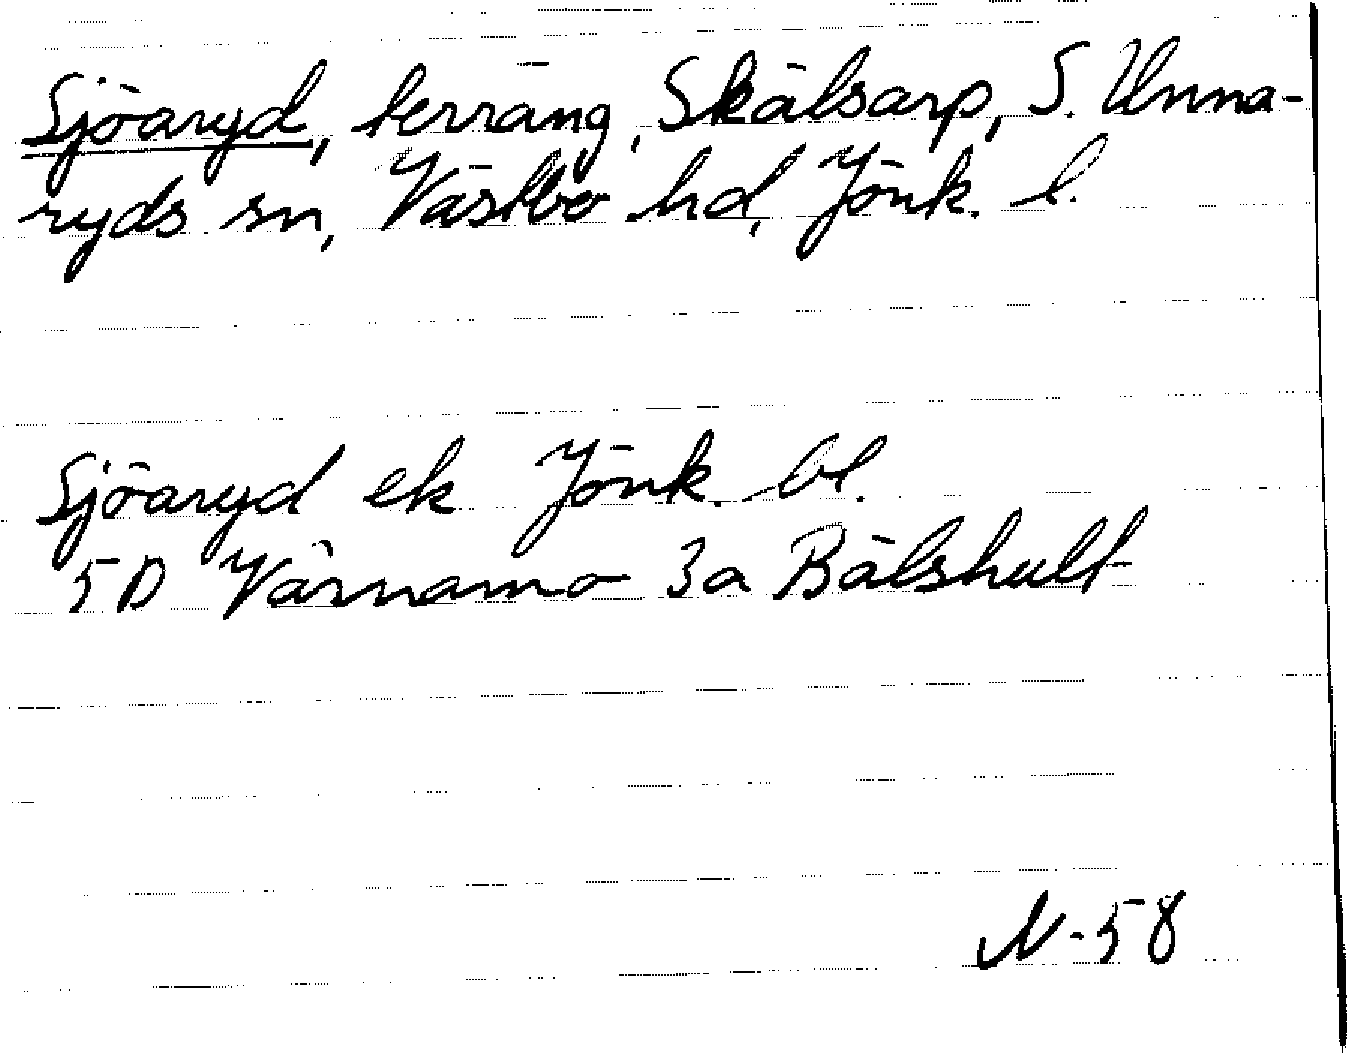 Sjöaryd, terräng, Skälsarp, S. Unna-
ryds sn, Västbo hd, Jönk. l.
Sjöaryd ek Jönk. bl.
5D Värnamo 3a Bälshult
N-58